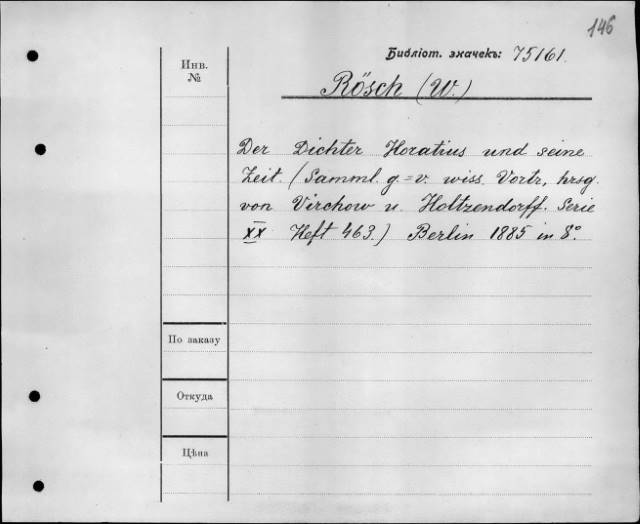 146
Библіот. значекъ: 75161.
Инв.
№
Rösch (W.)
Der Dichter Horatius und seine
Zeit. (Samml. g=v. wiss. Vortr., hrsg.
von Virchow u. Holtzendorff. Serie
XX Heft 463.) Berlin 1885 in 8°.
По заказу
Откуда
Цѣна